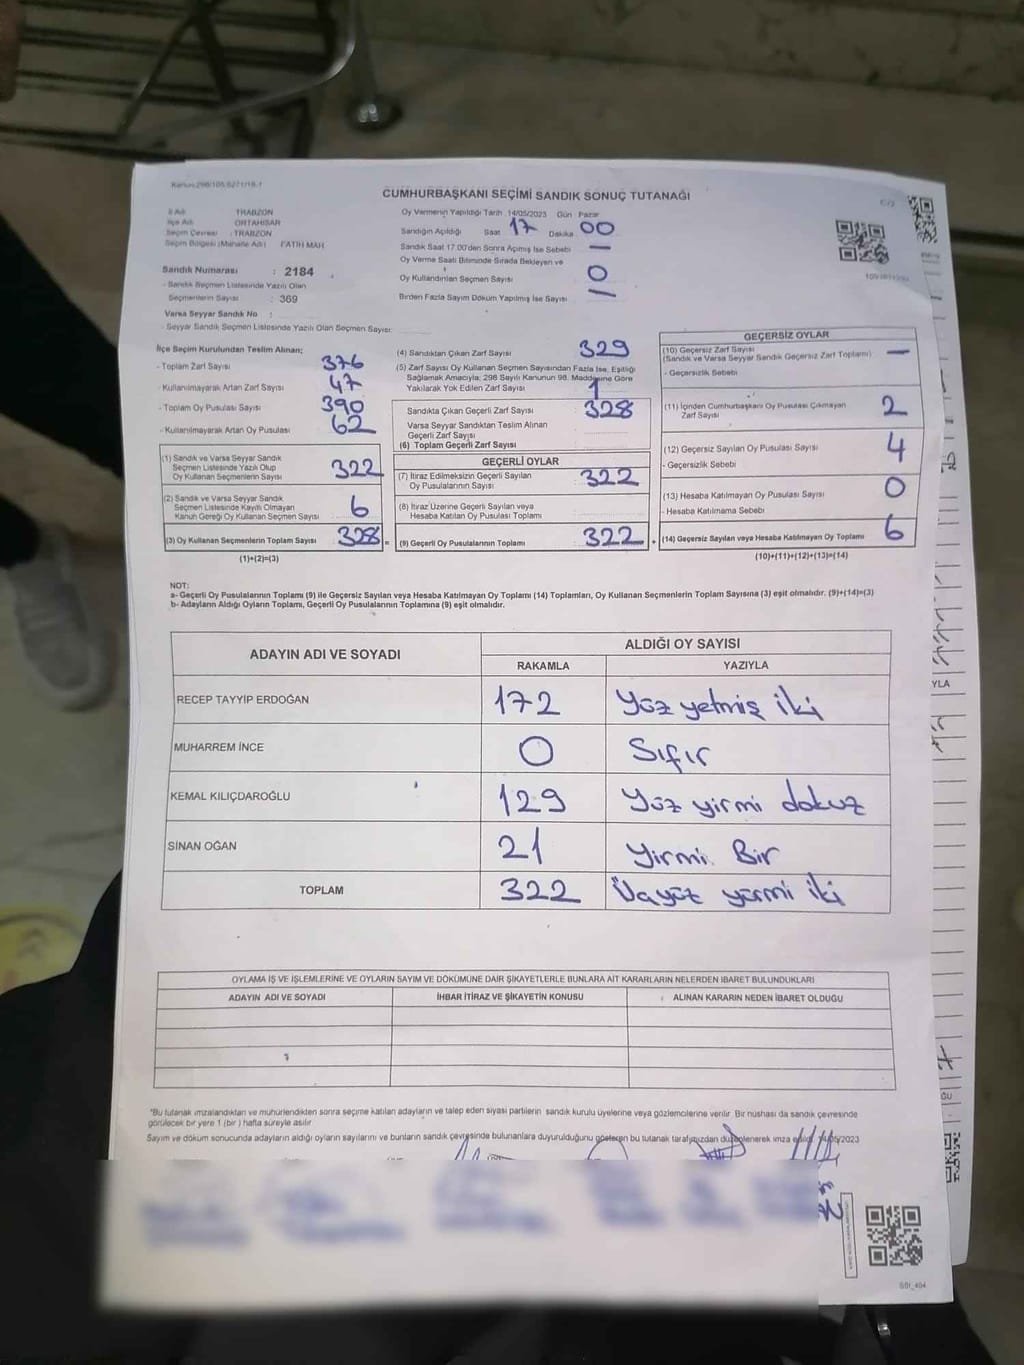 Kanun:298/105,6271/18-1
CUMHURBAŞKANI SEÇİMİ SANDIK SONUÇ TUTANAĞI
İl Adı : TRABZON
İlçe Adı : ORTAHİSAR
Seçim Çevresi : TRABZON
Seçim Bölgesi (Mahalle Adı) : FATİH MAH
Sandık Numarası : 2184
- Sandık Seçmen Listesinde Yazılı Olan
Seçmenlerin Sayısı : 369
Varsa Seyyar Sandık No :
- Seyyar Sandık Seçmen Listesinde Yazılı Olan Seçmen Sayısı:
Oy Vermenin Yapıldığı Tarih 14/05/2023 Gün Pazar
Sandığın Açıldığı Saat 17 Dakika 00
Sandık Saat 17.00'den Sonra Açılmış İse Sebebi —
Oy Verme Saati Bitiminde Sırada Bekleyen ve
Oy Kullandırılan Seçmen Sayısı 0
Birden Fazla Sayım Döküm Yapılmış İse Sayısı —
İlçe Seçim Kurulundan Teslim Alınan;
- Toplam Zarf Sayısı 376
- Kullanılmayarak Artan Zarf Sayısı 47
- Toplam Oy Pusulası Sayısı 390
- Kullanılmayarak Artan Oy Pusulası 62
(1) Sandık ve Varsa Seyyar Sandık
Seçmen Listesinde Yazılı Olup
Oy Kullanan Seçmenlerin Sayısı 322
(2) Sandık ve Varsa Seyyar Sandık
Seçmen Listesinde Kayıtlı Olmayan
Kanun Gereği Oy Kullanan Seçmen Sayısı 6
(3) Oy Kullanan Seçmenlerin Toplam Sayısı 328 =
(1)+(2)=(3)
(4) Sandıktan Çıkan Zarf Sayısı 329
(5) Zarf Sayısı Oy Kullanan Seçmen Sayısından Fazla İse, Eşitliği
Sağlamak Amacıyla; 298 Sayılı Kanunun 98. Maddesine Göre
Yakılarak Yok Edilen Zarf Sayısı 1
Sandıkta Çıkan Geçerli Zarf Sayısı 328
Varsa Seyyar Sandıktan Teslim Alınan
Geçerli Zarf Sayısı
(6) Toplam Geçerli Zarf Sayısı
GEÇERLİ OYLAR
(7) İtiraz Edilmeksizin Geçerli Sayılan
Oy Pusulalarının Sayısı 322
(8) İtiraz Üzerine Geçerli Sayılan veya
Hesaba Katılan Oy Pusulası Toplamı
(9) Geçerli Oy Pusulalarının Toplamı 322 +
GEÇERSİZ OYLAR
(10) Geçersiz Zarf Sayısı
(Sandık ve Varsa Seyyar Sandık Geçersiz Zarf Toplamı) —
- Geçersizlik Sebebi
(11) İçinden Cumhurbaşkanı Oy Pusulası Çıkmayan
Zarf Sayısı 2
(12) Geçersiz Sayılan Oy Pusulası Sayısı 4
- Geçersizlik Sebebi
(13) Hesaba Katılmayan Oy Pusulası Sayısı 0
- Hesaba Katılmama Sebebi
(14) Geçersiz Sayılan veya Hesaba Katılmayan Oy Toplamı 6
(10)+(11)+(12)+(13)=(14)
NOT:
a- Geçerli Oy Pusulalarının Toplamı (9) ile Geçersiz Sayılan veya Hesaba Katılmayan Oy Toplamı (14) Toplamları, Oy Kullanan Seçmenlerin Toplam Sayısına (3) eşit olmalıdır. (9)+(14)=(3)
b- Adayların Aldığı Oyların Toplamı, Geçerli Oy Pusulalarının Toplamına (9) eşit olmalıdır.
ADAYIN ADI VE SOYADI ALDIĞI OY SAYISI
RAKAMLA YAZIYLA
RECEP TAYYİP ERDOĞAN 172 Yüz yetmiş iki
MUHARREM İNCE 0 Sıfır
KEMAL KILIÇDAROĞLU 129 Yüz yirmi dokuz
SİNAN OĞAN 21 Yirmi Bir
TOPLAM 322 yirmi iki
OYLAMA İŞ VE İŞLEMLERİNE VE OYLARIN SAYIM VE DÖKÜMÜNE DAİR ŞİKAYETLERLE BUNLARA AİT KARARLARIN NELERDEN İBARET BULUNDUKLARI
ADAYIN ADI VE SOYADI İHBAR İTİRAZ VE ŞİKAYETİN KONUSU ALINAN KARARIN NEDEN İBARET OLDUĞU
*Bu tutanak imzalandıktan ve mühürlendikten sonra seçime katılan adayların ve talep eden siyasi partilerin sandık kurulu üyelerine veya gözlemcilerine verilir. Bir nüshası da sandık çevresinde
görülecek bir yere 1 (bir) hafta süreyle asılır
Sayım ve döküm sonucunda adayların aldığı oyların sayılarını ve bunların sandık çevresinde bulunanlara duyurulduğunu gösteren bu tutanak tarafımızdan düzenlenerek imza edildi. 14/05/2023
YLA